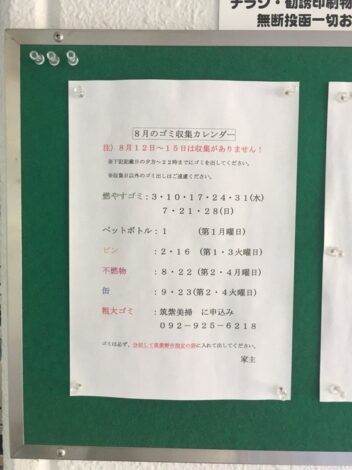 チラシ・勧誘印刷物
無断投函一切お
８月のゴミ収集カレンダー
注）８月１２日～１５日は収集がありません！
※下記記載日の夕方～２２時までにゴミを出してください。
※収集日以外のゴミ出しはご遠慮ください。
燃やすゴミ：３・１０・１７・２４・３１(水)
７・２１・２８(日)
ペットボトル：１　　（第１月曜日）
ビン　　　：２・１６　（第１・３火曜日）
不燃物　　：８・２２（第２・４月曜日）
缶　　　　：９・２３(第２・４火曜日）
粗大ゴミ　：筑紫美掃　に申込み
０９２－９２５－６２１８
ゴミは必ず、分別して筑紫野市指定の袋に入れて出してください。
家主